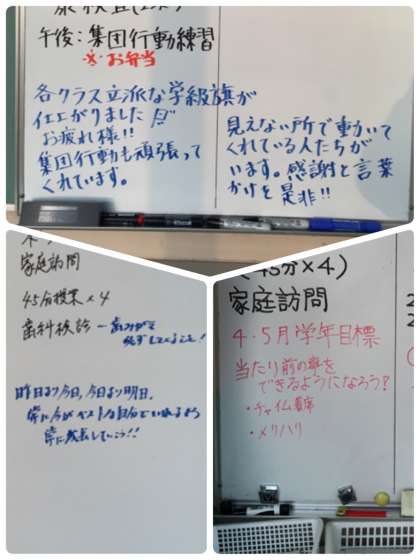 午後：集団行動練習
※お弁当
各クラス立派な学級旗が
仕上がりました
お疲れ様!!
集団行動も頑張って
くれています。
見えない所で動いて
くれている人たちが
います。感謝と言葉
かけを是非!!
家庭訪問
45分授業×4
歯科検診 ー 歯みがきを
必ずしてくること!
昨日より今日、今日より明日。
常に今がベストな自分でいれるよう
常に成長していこう!!
(45分×4)
家庭訪問
4・5月学年目標
当たり前の事を
できるようになろう?
・チャイム着席
・メリハリ